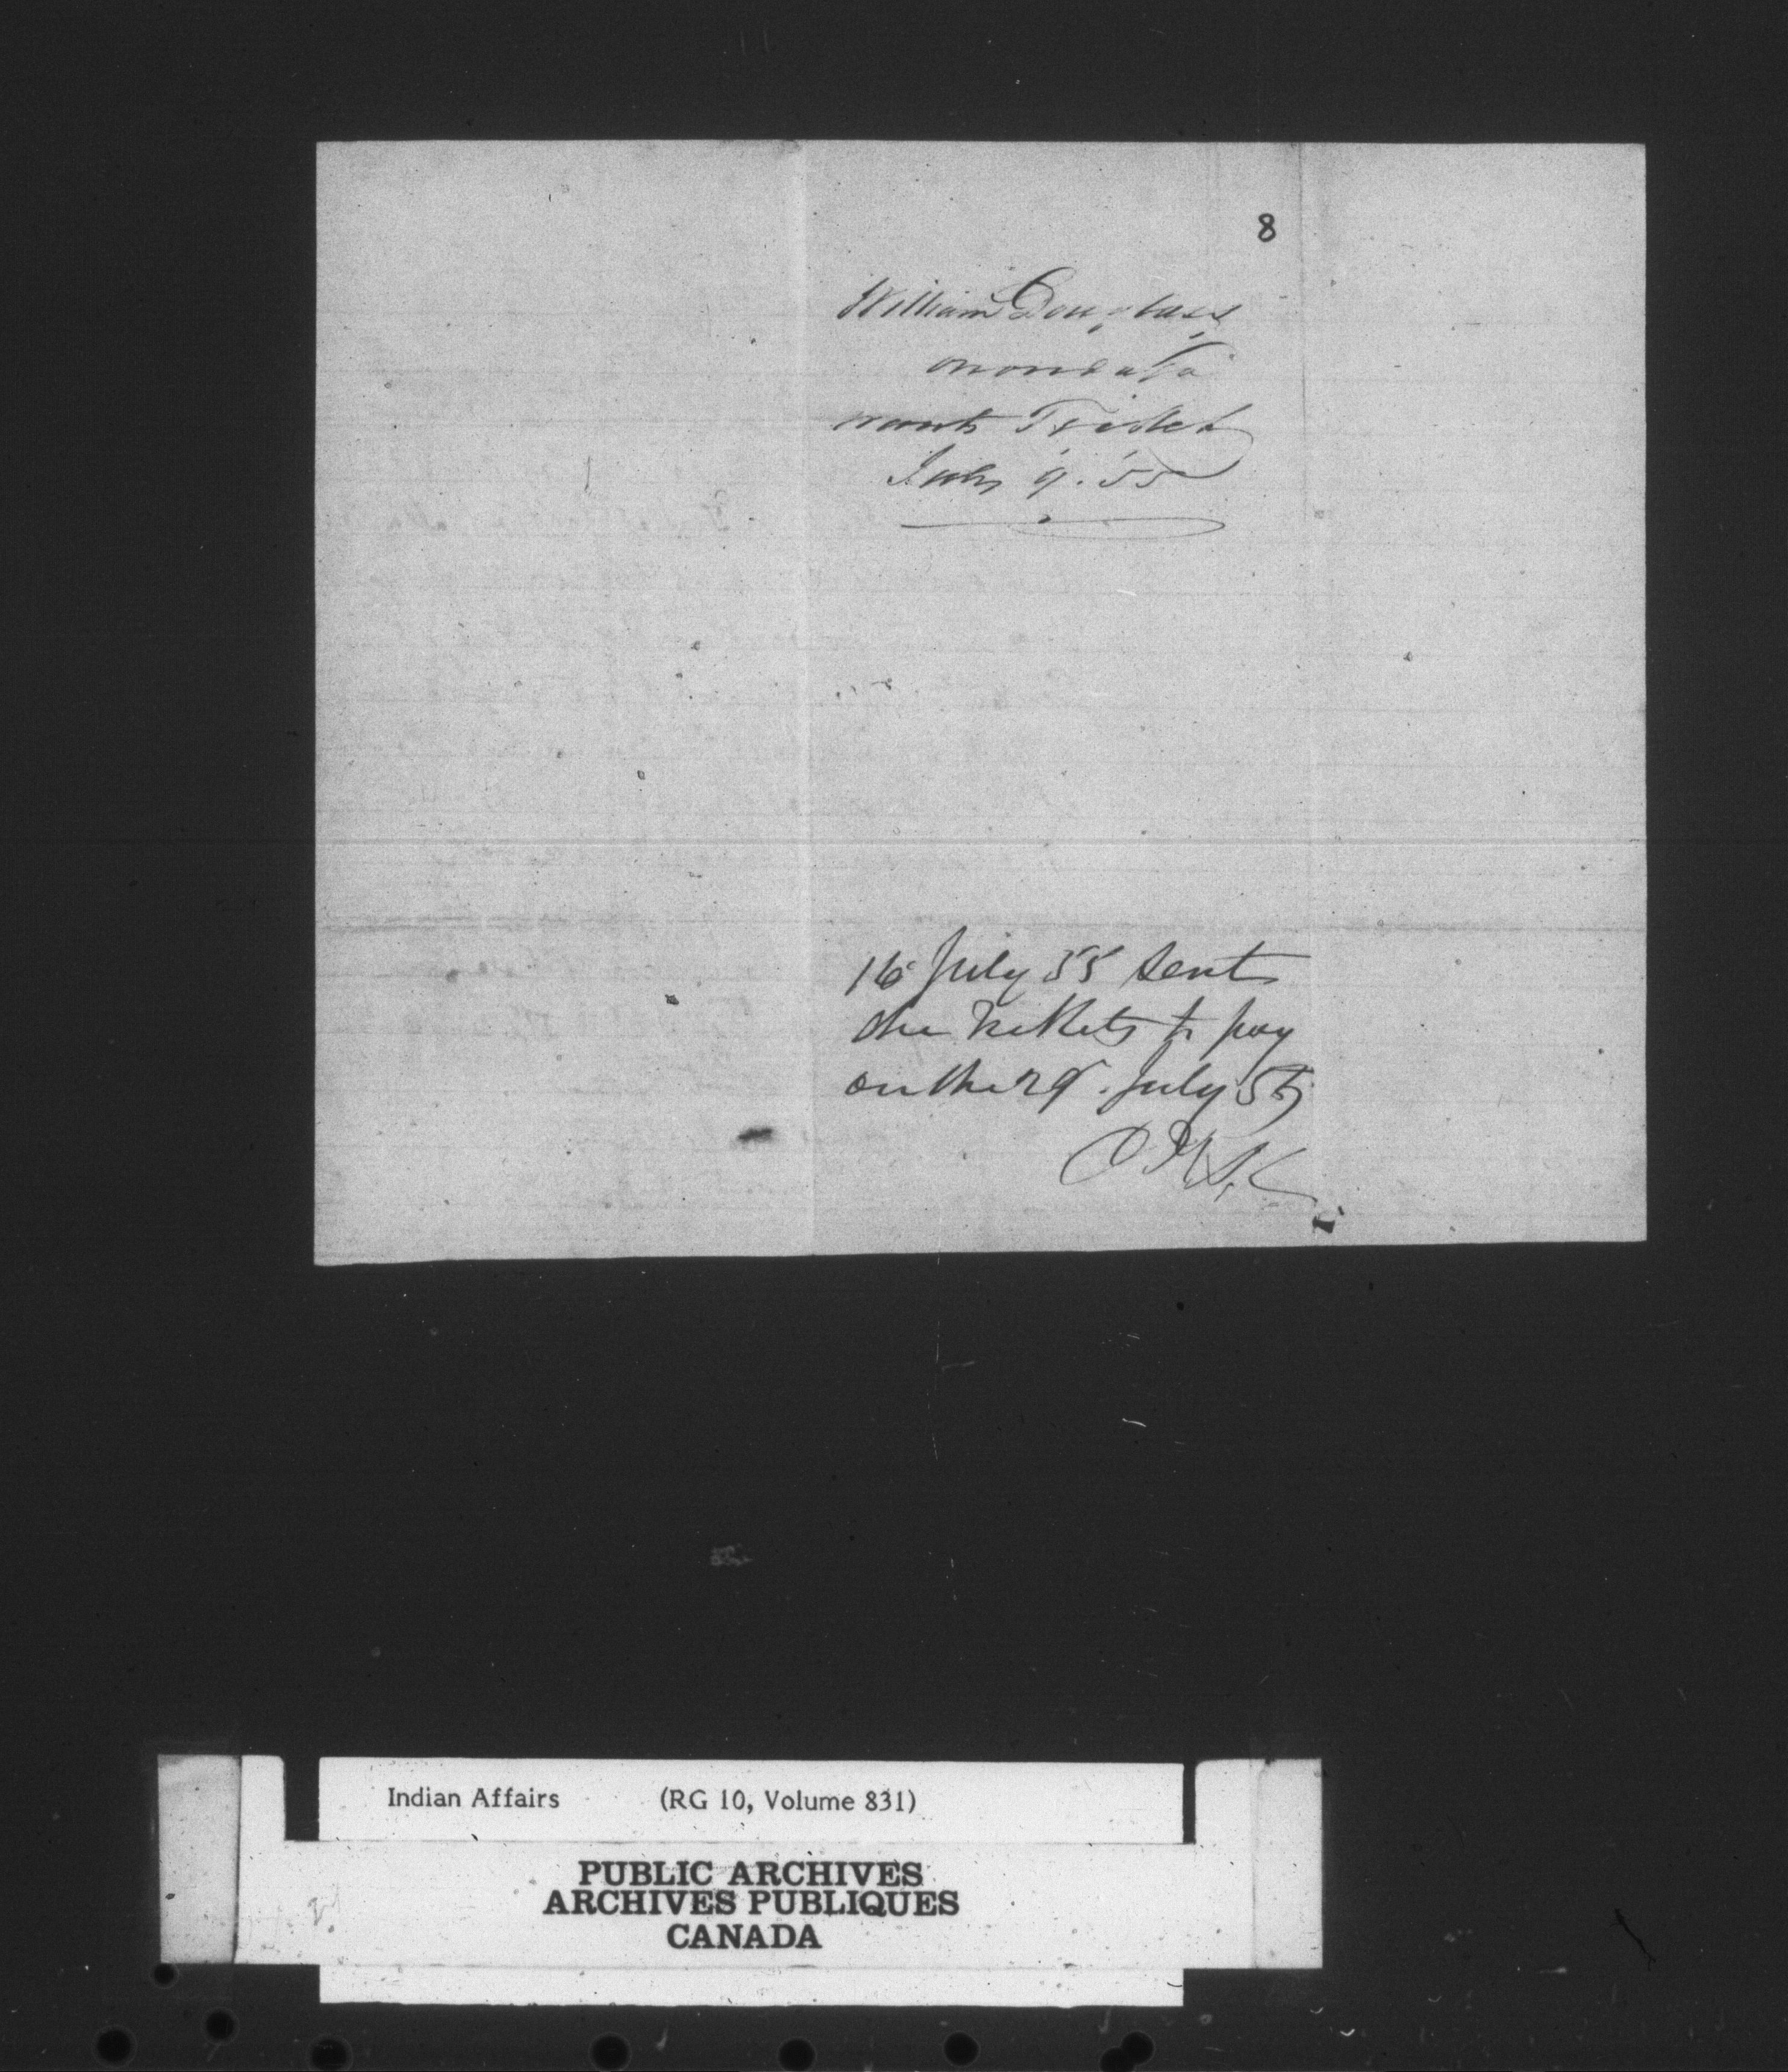 8
William Douglass
Onondaga
wants Ticket
July 9. 55
16 July 55 sent
the tickets to pay
on the 29. July 55
Indian Affairs (RG 10, Volume 831)
PUBLIC ARCHIVES
ARCHIVES PUBLIQUES
CANADA